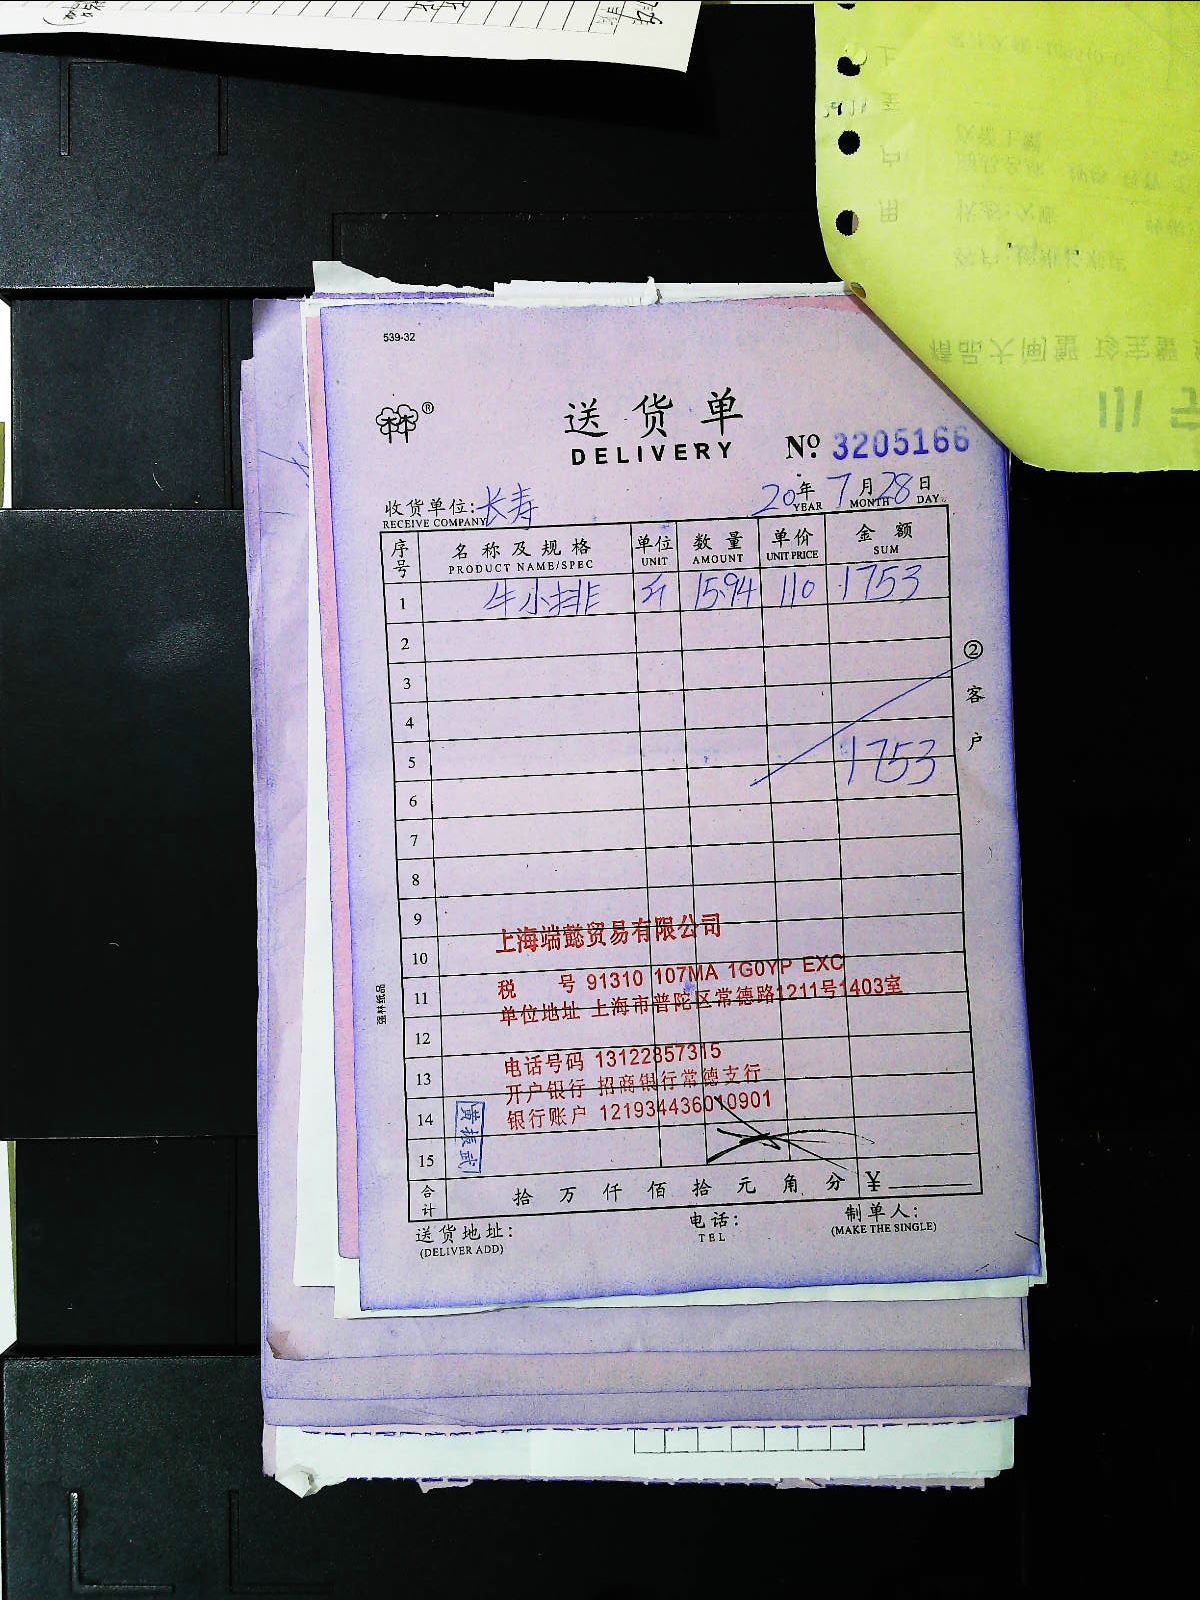 539-32
®
送货单
DELIVERY
№ 3205166
收货单位:长寿
RECEIVE COMPANY
20年 7月 28日
YEAR MONTH DAY
序号 名称及规格 单位 数量 单价 金额
PRODUCT NAME/SPEC UNIT AMOUNT UNIT PRICE SUM
1 牛小排 斤 15.94 110 1753
2
3
4
5 1753
6
7
8
9
10
11
12
13
14
15
上海端懿贸易有限公司
税 号 91310 107MA 1G0YP EXC
单位地址 上海市普陀区常德路1211号1403室
电话号码 13122857315
开户银行 招商银行常德支行
银行账户 121934436010901
黄振武
合计 拾万仟佰拾元角分 ¥
送货地址:
(DELIVER ADD)
电话:
TEL
制单人:
(MAKE THE SINGLE)
②客户
强林纸品
精品大闸蟹 红宝蟹